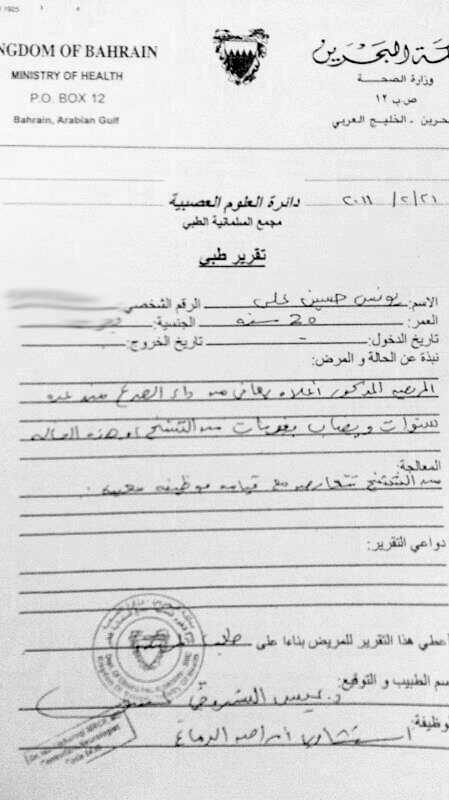 1925
NGDOM OF BAHRAIN
MINISTRY OF HEALTH
P.O. BOX 12
Bahrain, Arabian Gulf
ـكة البحرين
وزارة الصحـــة
ص.ب ١٢
ـحرين - الخليج العربي
٢٠١١/٢/٢١
دائرة العلوم العصبية
مجمع السلمانية الطبي
تقرير طبي
الاسم: يونس حسين علي الرقم الشخصي:
العمر: 20 سنه الجنسية:
تاريخ الدخول: - تاريخ الخروج:
نبذة عن الحالة و المرض:
المريض المذكور أعلاه يعاني من داء الصرع منذ عدة
سنوات ويصاب بنوبات من التشنج وهذه الحاله
المعالجة:
من التشنج تتعارض مع قيامه بوظيفه معينه .
دواعي التقرير:
أعطي هذا التقرير للمريض بناءا على
ـسم الطبيب و التوقيع:
د. عيسى
ـوظيفة:
استشاري أمراض الدماغ